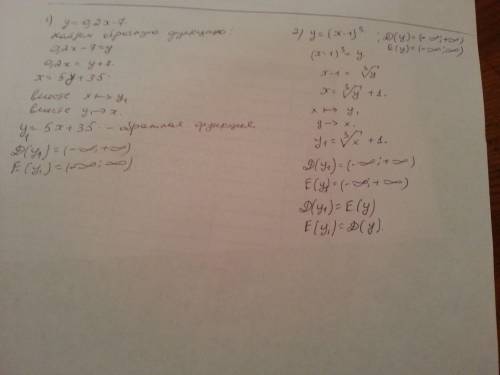 1) y = 0,2x - 7
Найдём обратную функцию:
0,2x - 7 = y
0,2x = y + 7
x = 5y + 35
вместо x ↦ y₁
вместо y → x.
y₁ = 5x + 35 - обратная функция.
D(y₁) = (-∞; +∞)
E(y₁) = (-∞; ∞)
2) y = (x-1)³ ; D(y) = (-∞; +∞)
E(y) = (-∞; ∞)
(x-1)³ = y
x-1 = ∛y
x = ∛y + 1.
x ↦ y₁
y → x.
y₁ = ∛x + 1.
D(y₁) = (-∞; +∞)
E(y₁) = (-∞; +∞)
D(y₁) = E(y)
E(y₁) = D(y).